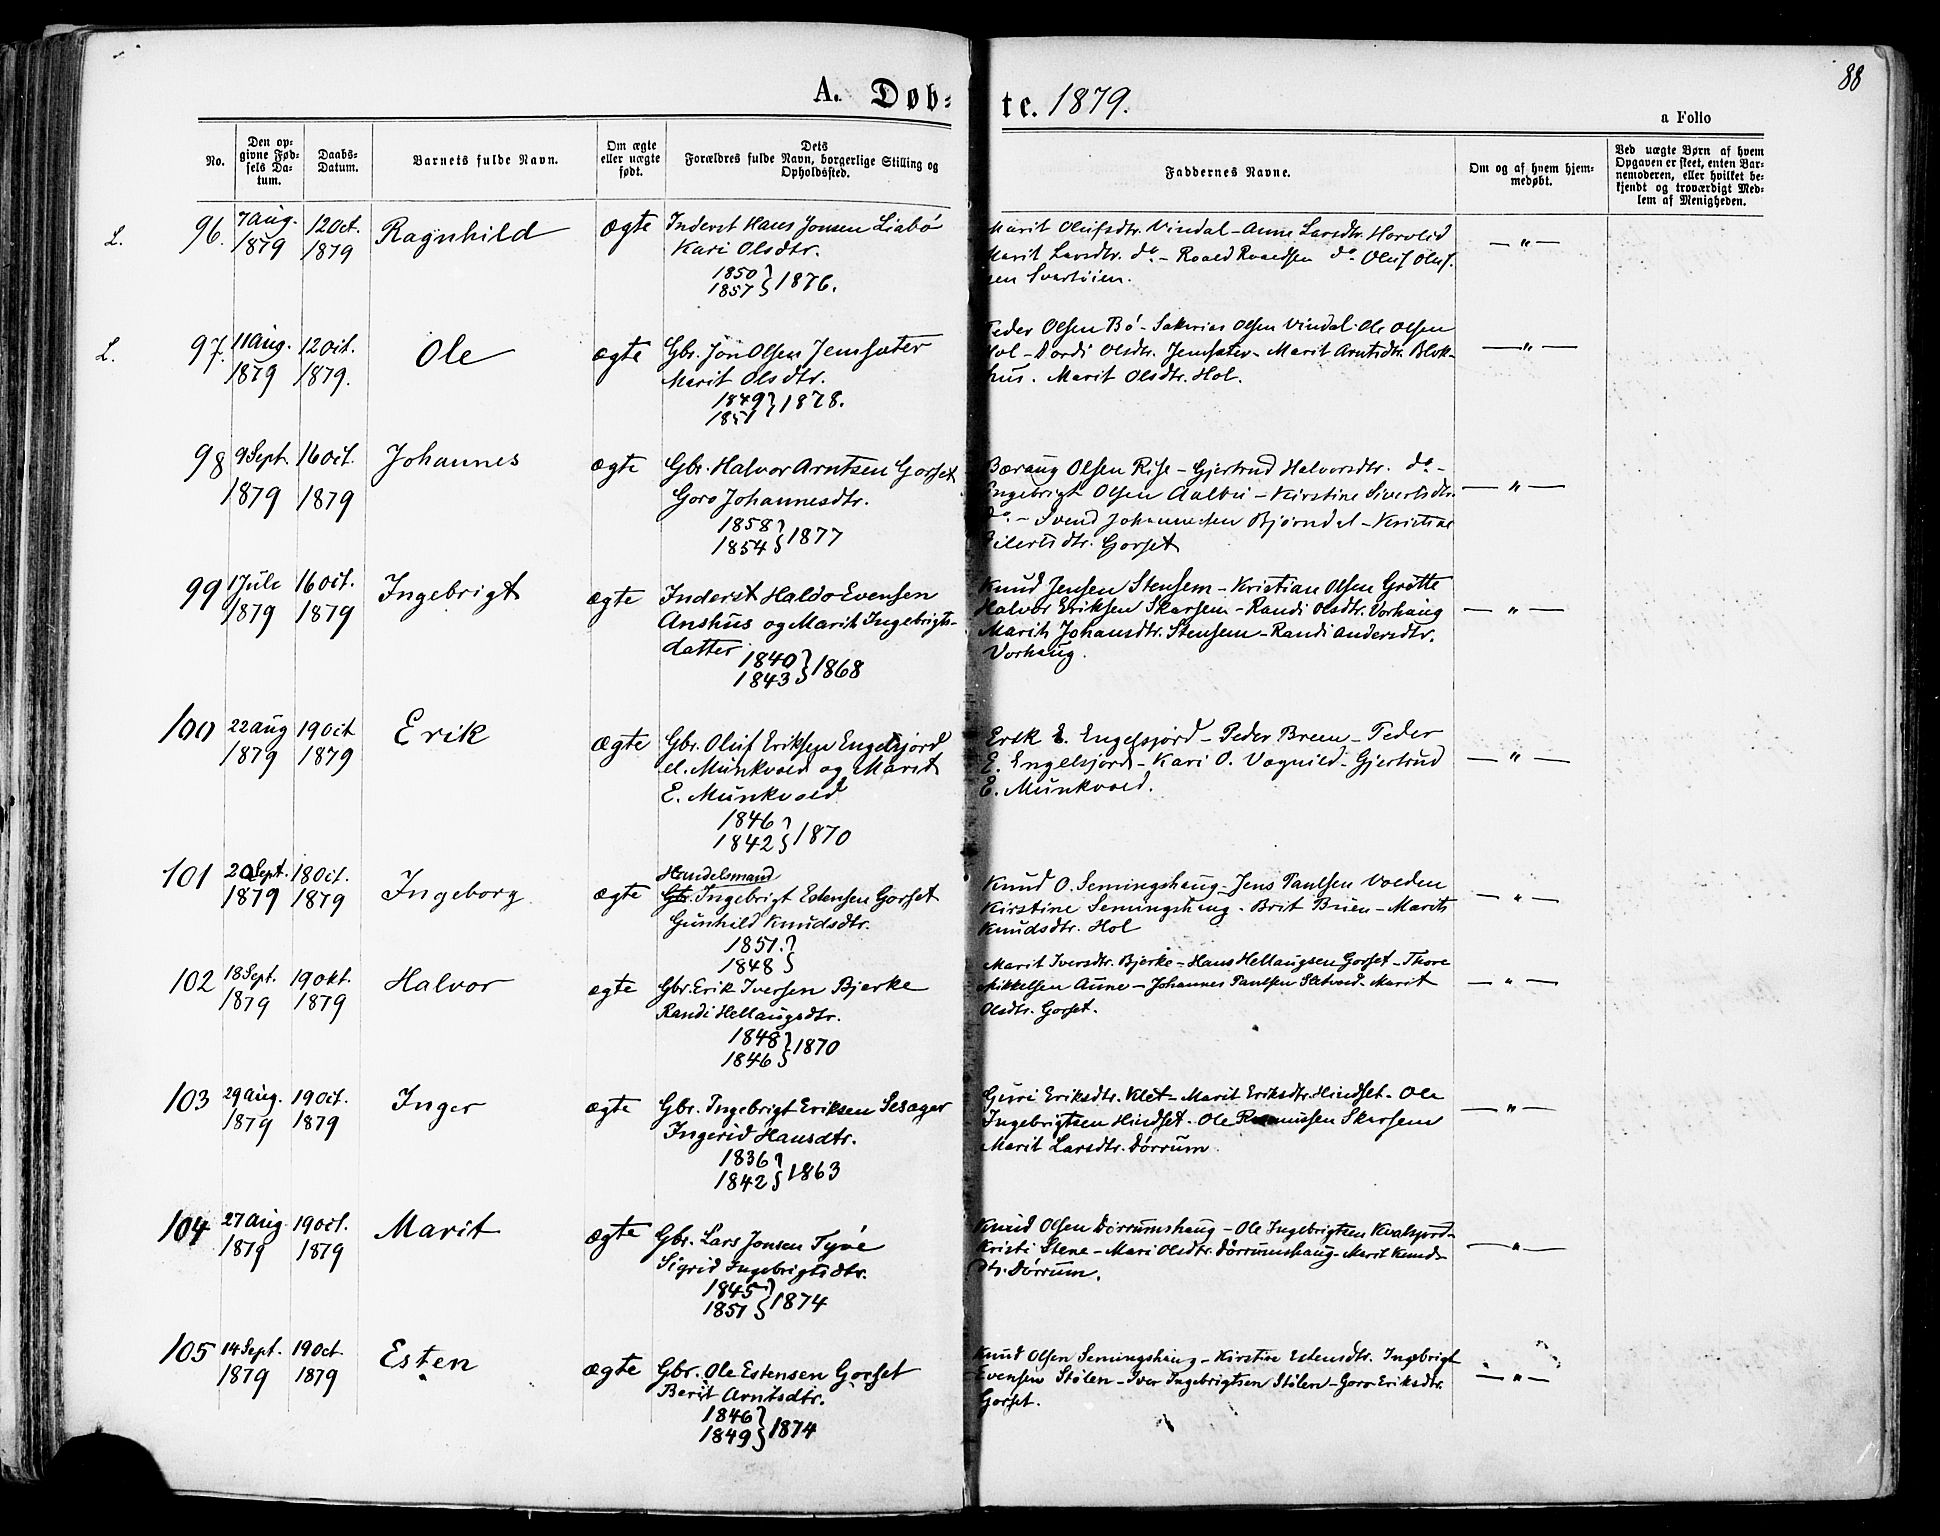 88
A. Døb= te. 1879.
a Folio
No.
Den op-
givne Fød-
sels Da-
tum.
Daabs-
Datum.
Barnets fulde Navn.
Om ægte
eller uægte
født.
Dets
Forældres fulde Navn, borgerlige Stilling og
Opholdssted.
Faddernes Navne.
Om og af hvem hjem-
medøbt.
Ved uægte Børn af hvem
Opgaven er skeet, enten Bar-
nemoderen, eller hvilket be-
kjendt og troværdigt Med-
lem af Menigheden.
L. 96. 7 Aug. 1879 12 Oct. 1879 Ragnhild ægte
Inderst Hans Jonsen Liabø
Kari Olsdtr.
1850 } 1876.
1857
Marit Olufsdtr. Vindal - Anne Larsdtr. Horvlid
Marit Larsdtr. do. - Roald Roaldsen do. Oluf Oluf-
sen Svartøien.
— " —
L. 97. 11 Aug. 1879 12 Oct. 1879. Ole ægte
Gbr. Jon Olsen Jemsæter
Marit Olsdtr.
1849 } 1878.
1851
Peder Olsen Bø - Sakarias Olsen Vindal - Ole Olsen
Hol - Dordi Olsdtr. Jemsæter - Marit Arntsdtr. Blok-
hus. Marit Olsdtr. Hol.
— " —
98 9 Sept. 1879 16 Oct. 1879 Johannes ægte
Gbr. Halvor Arntsen Gorset
Goro Johannesdtr.
1858 } 1877
1854
Bæraug Olsen Rise - Gjertrud Halvorsdtr. do -
Engebrigt Olsen Aalbu - Kirstine Sivertsdtr.
do. - Svend Johannesen Bjørndal - Kristine
Eilertsdtr. Gorset
— " —
99 1 Juli 1879 16 Oct. 1879 Ingebrigt ægte
Inderst Haldo Evensen
Anshus og Marit Ingebrigts-
datter
1840 } 1868
1843
Knud Jensen Stensem - Kristian Olsen Grøtte
Halvor Eriksen Skarsem - Randi Olsdtr. Vorhaug
Marit Johansdtr. Stensem - Randi Andersdtr.
Vorhaug.
— " —
100 22 Aug 1879 19 Oct 1879 Erik ægte
Gbr. Oluf Eriksen Engelsjord
el. Munkvold og Marit
E. Munkvold
1846 } 1870
1842
Erik E. Engelsjord - Peder Breen - Peder
E. Engelsjord - Kari O. Vognild - Gjertrud
E. Munkvold.
— " —
101 20 Sept. 1879 18 Oct. 1879 Ingeborg ægte
Handelsmand
Gbr. Ingebrigt Estensen Gorset
Gunhild Knudsdtr.
1851. }
1848
Knud O. Semingshaug - Jens Paulsen Volden
Kirstine Semingshaug - Brit Buen - Marit
Knudsdtr. Hol
— " —
102 18 Sept. 1879 19 Okt. 1879 Halvor ægte
Gbr. Erik Iversen Bjerke
Randi Hellaugsdtr.
1848 } 1870
1846
Marit Iversdtr. Bjerke - Hans Hellaugsen Gorset - Thore
Mikkelsen Aune - Johannes Paulsen Sletvold - Marit
Olsdtr. Gorset.
— " —
103 29 Aug. 1879 19 Oct. 1879 Inger ægte
Gbr. Ingebrigt Eriksen Sesager
Ingerid Hansdtr.
1836 } 1863
1842
Guri Eriksdtr. Klet - Marit Eriksdtr. Hindset - Ole
Ingebrigtsen Hindset - Ole Skarsem
Marit Larsdtr. Dørrum.
— " —
104 27 Aug. 1879 19 Oct. 1879 Marit ægte
Gbr. Lars Jonsen Tyve
Sigrid Ingebrigtsdtr.
1845 } 1874
1851
Knud Olsen Dørrumshaug - Ole Ingebrigtsen Kvalsjord -
Kristi Stene - Mari Olsdtr. Dørrumshaug - Marit Knuds-
dtr. Dørrum.
— " —
105 14 Sept. 1879 19 Oct 1879 Esten ægte
Gbr. Ole Estensen Gorset
Berit Arntsdtr.
1846 } 1874
1849
Knud Olsen Semingshaug - Kirstine Estensdtr. Ingebrigt
Evensen Stølen - Iver Ingebrigtsen Stølen - Goro Eriksdtr.
Gorset.
— " —